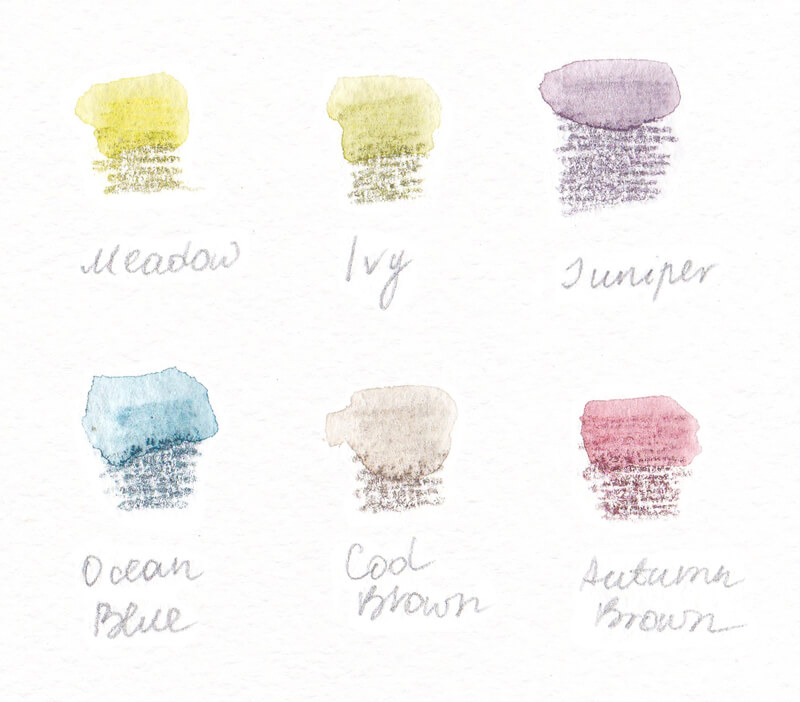 Meadow
Ivy
Juniper
Ocean
Blue
Cool
Brown
Autumn
Brown